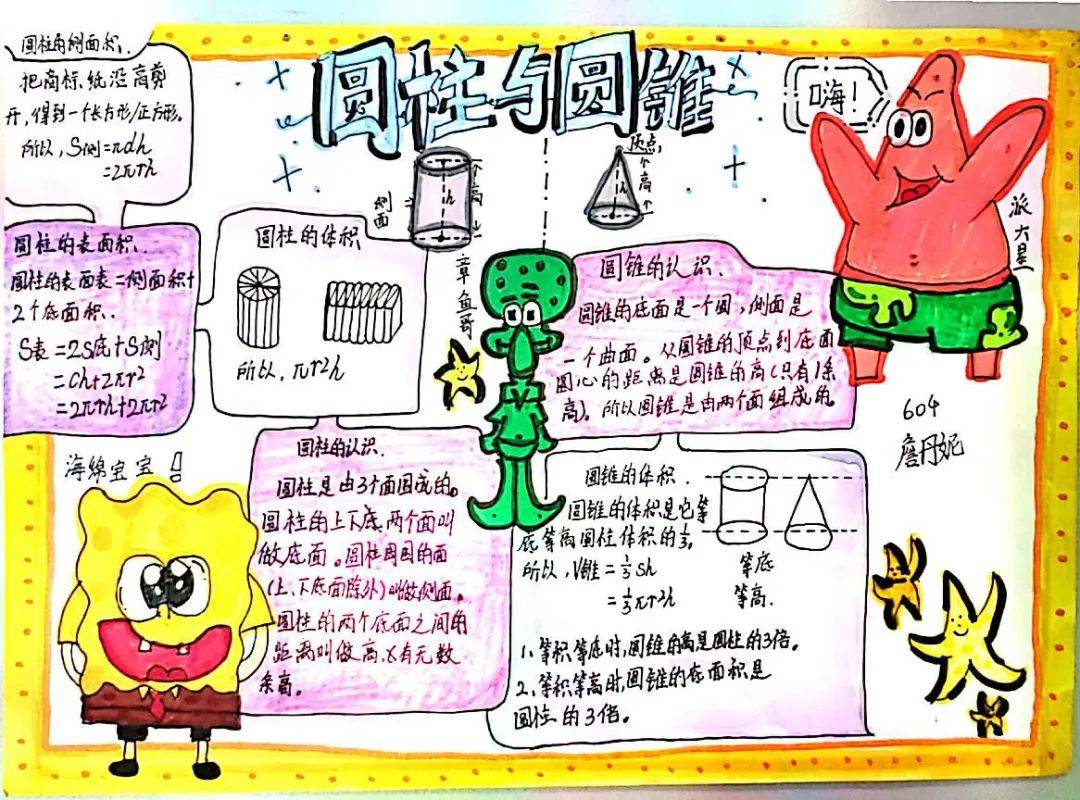 圆柱与圆锥
圆柱的侧面积.
把商标纸沿高剪
开,得到一个长方形/正方形。
所以,S侧=πdh
=2πrh
圆柱的表面积.
圆柱的表面表=侧面积+
2个底面积.
S表=2S底+S侧
=Ch+2πr²
=2πrh+2πr²
圆柱的体积
所以,πr²h
侧面
h
高
顶点
h
高
嗨!
派大星
章鱼哥
圆锥的认识.
圆锥的底面是一个圆,侧面是
一个曲面。从圆锥的顶点到底面
圆心的距离是圆锥的高(只有1条
高)。所以圆锥是由两个面组成的。
604
詹丹妮
海绵宝宝!
圆柱的认识.
圆柱是由3个面围成的。
圆柱的上下底两个面叫
做底面。圆柱周围的面
(上、下底面除外)叫做侧面。
圆柱的两个底面之间的
距离叫做高,有无数
条高。
圆锥的体积.
圆锥的体积是它等
底等高圆柱体积的1/3,
所以,V锥=1/3sh
=1/3πr²h
等底
等高.
1、等积等底时,圆锥的高是圆柱的3倍。
2、等积等高时,圆锥的底面积是
圆柱的3倍。